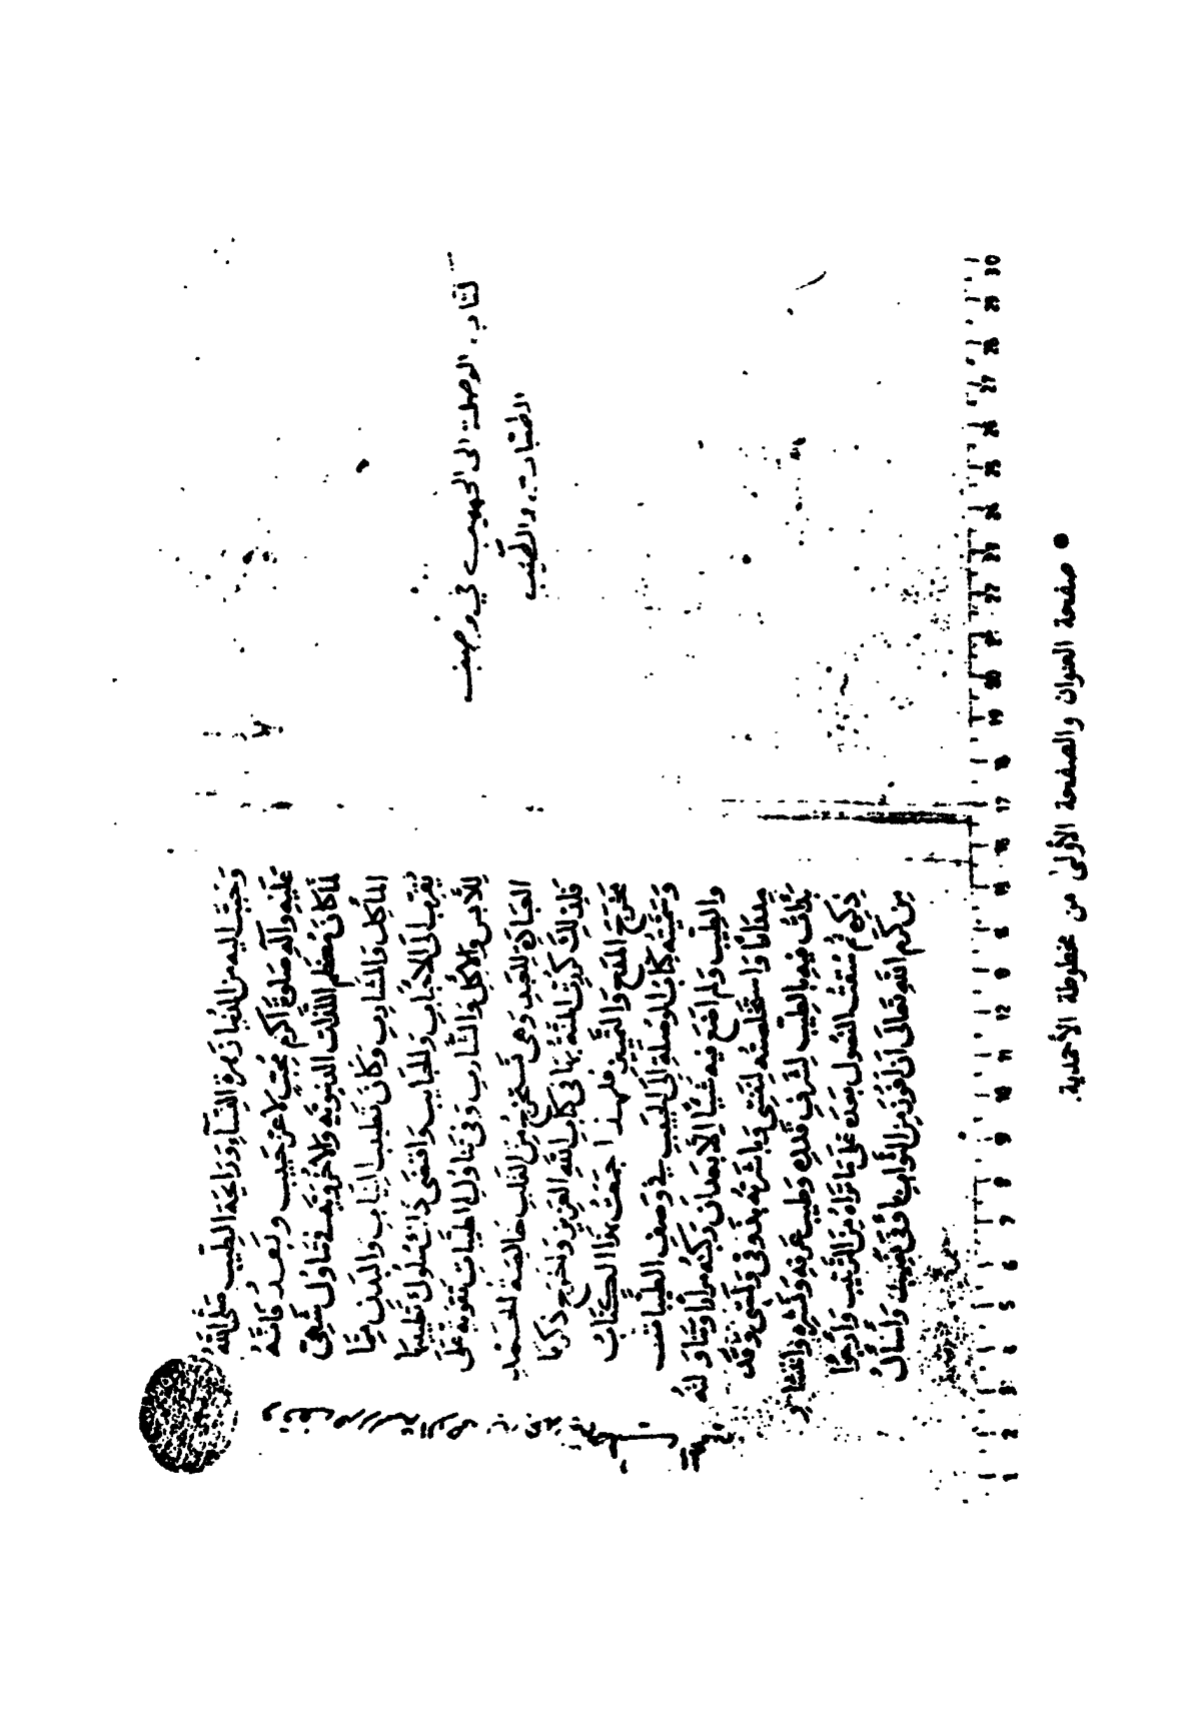 كتاب الوصلة الى الحبيب في وصف
الطيبات والطيب
وحبب اليه من الدنيا زهرة النساء ورائحة الطيب صلى الله
عليه وآله صلوة اكرم محب لاعز حبيب وبعد فانه
لما كان معظم اللذات الدنيوية والاخروية في تناول شهى
المآكل والمشارب وكان تطييب الثياب والبدن مما
يقرب الى الاحباب والحبايب واقتضى ذلك
للأبس والآكل والشارب وفي تناول الطيبات تقوية على
العبادة للعبد وهى تستخرج من القلب خالصة الحمد
فلذلك كررت المنة بها فى كتاب الله العزيز وخرج ذكرها
مخرج المدح والتمييز فلهذا جمعت هذا الكتاب
وسميته كتاب الوصلة الى الحبيب في وصف الطيبات
والطيب ولم اضع فيه شيئا الا بعد ان ركبته مرارا وتناولته
مدرارا واستخلصته لنفسى وباشرته بذوقى ولمسى وقد
بدأت فيه بالطيب لشرف قدره وطيب عرفه ونشره وانتشار
ذكره ثم سقت الفصول بعده على ما تراه من الترتيب وارجوا
من كرم الله تعالى ان افوز من الثواب واسأل
1 2 3 4 5 6 7 8 9 10 11 12 15 16 17 18 19 20 27 25 26 28 29 30
• صفحة العنوان والصفحة الأولى من مخطوطة الأحمدية.